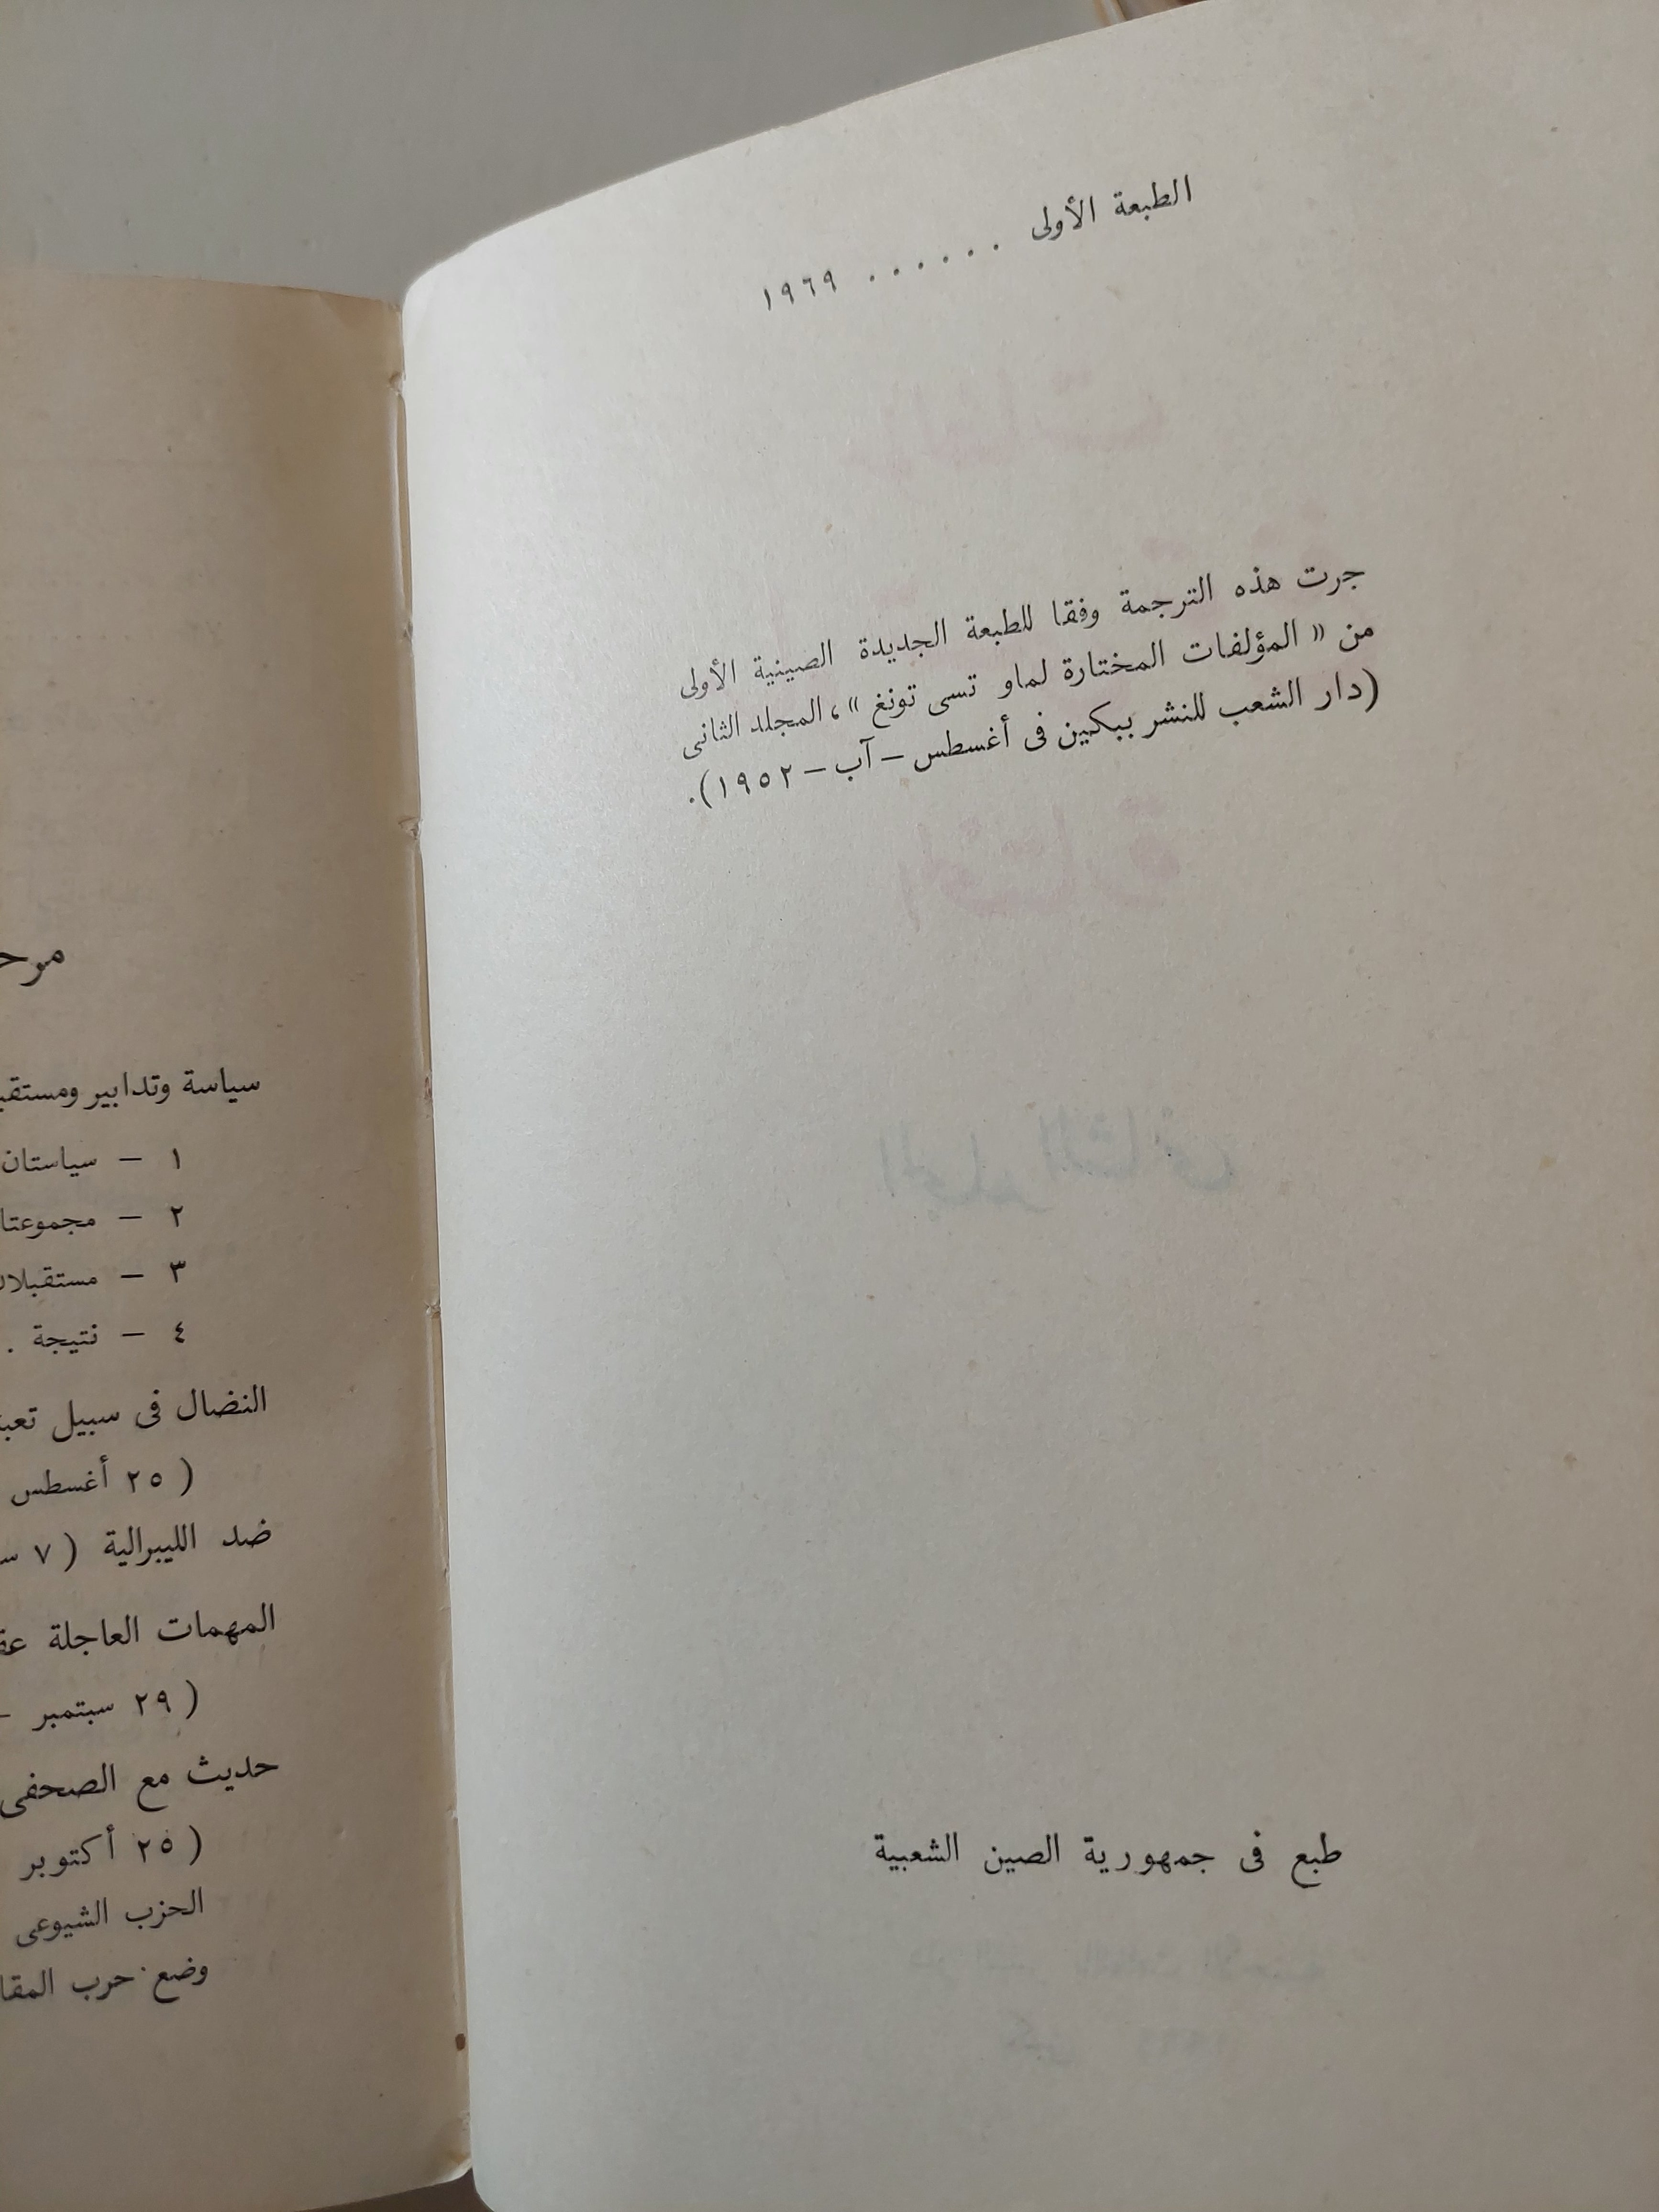 الطبعة الأولى ...... ١٩٦٩
جرت هذه الترجمة وفقا للطبعة الجديدة الصينية الأولى
من « المؤلفات المختارة لماو تسى تونغ »، المجلد الثانى
(دار الشعب للنشر ببكين فى أغسطس – آب – ١٩٥٢).
طبع فى جمهورية الصين الشعبية
سياسة وتدابير
١ – سياستان
٢ –
٣ –
٤ – نتيجة .
النضال فى سبيل
( ٢٥ أغسطس
ضد الليبرالية ( ٧
المهمات العاجلة
( ٢٩ سبتمبر –
حديث مع الصحفى
( ٢٥ أكتوبر
الحزب الشيوعى
وضع حرب